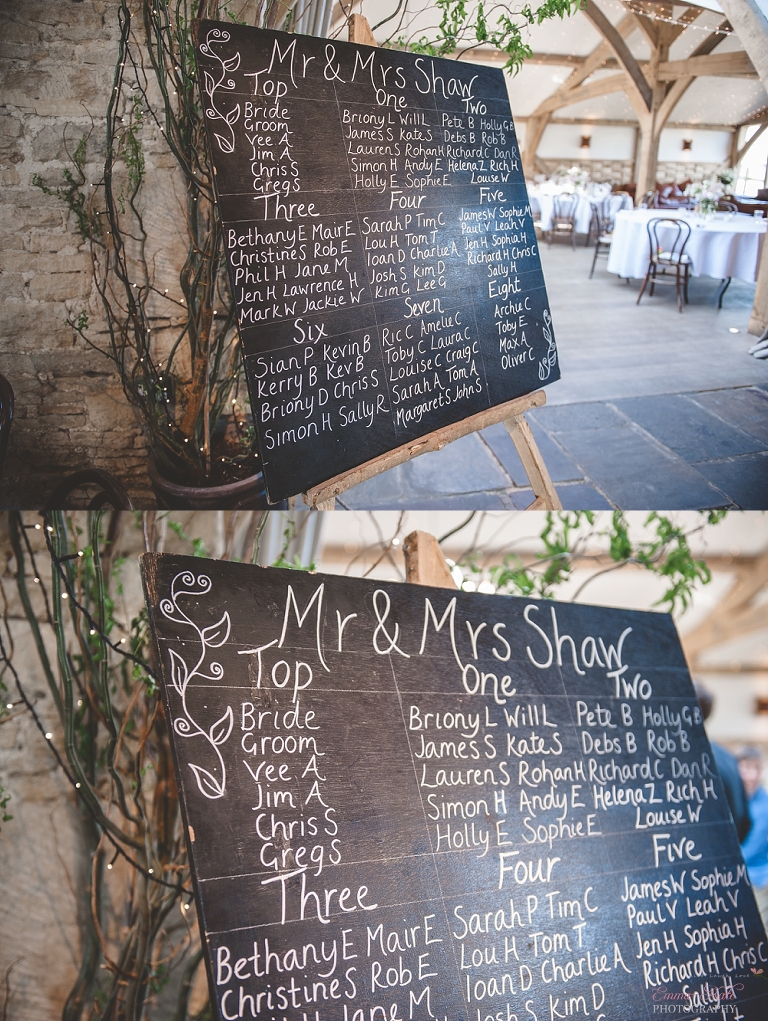 Mr & Mrs Shaw
Top
Bride
Groom
Vee A
Jim A
Chris S
Greg S
One
Briony L Will L
James S Kate S
Lauren S Rohan H
Simon H Andy E
Holly E Sophie E
Two
Pete B Holly G B
Debs B Rob B
Richard C Dan R
Helena Z Rich H
Louise W
Three
Bethany E Mair E
Christine S Rob E
Phil H Jane M
Jen H Lawrence H
Mark W Jackie W
Four
Sarah P Tim C
Lou H Tom T
Ioan D Charlie A
Josh S Kim D
Kim G Lee G
Five
James W Sophie M
Paul V Leah V
Jen H Sophia H
Richard H Chris C
Sally H
Six
Sian P Kevin B
Kerry B Kev B
Briony D Chris S
Simon H Sally R
Seven
Ric C Amelie C
Toby C Laura C
Louise C Craig C
Sarah A Tom A
Margaret S John S
Eight
Archie C
Toby E
Max A
Oliver C
Mr & Mrs Shaw
Top
Bride
Groom
Vee A
Jim A
Chris S
Greg S
One
Briony L Will L
James S Kate S
Lauren S Rohan H
Simon H Andy E
Holly E Sophie E
Two
Pete B Holly G B
Debs B Rob B
Richard C Dan R
Helena Z Rich H
Louise W
Three
Bethany E Mair E
Christine S Rob E
Jane M
Four
Sarah P Tim C
Lou H Tom T
Ioan D Charlie A
Josh S Kim D
Five
James W Sophie M
Paul V Leah V
Jen H Sophia H
Richard H Chris C
PHOTOGRAPHY